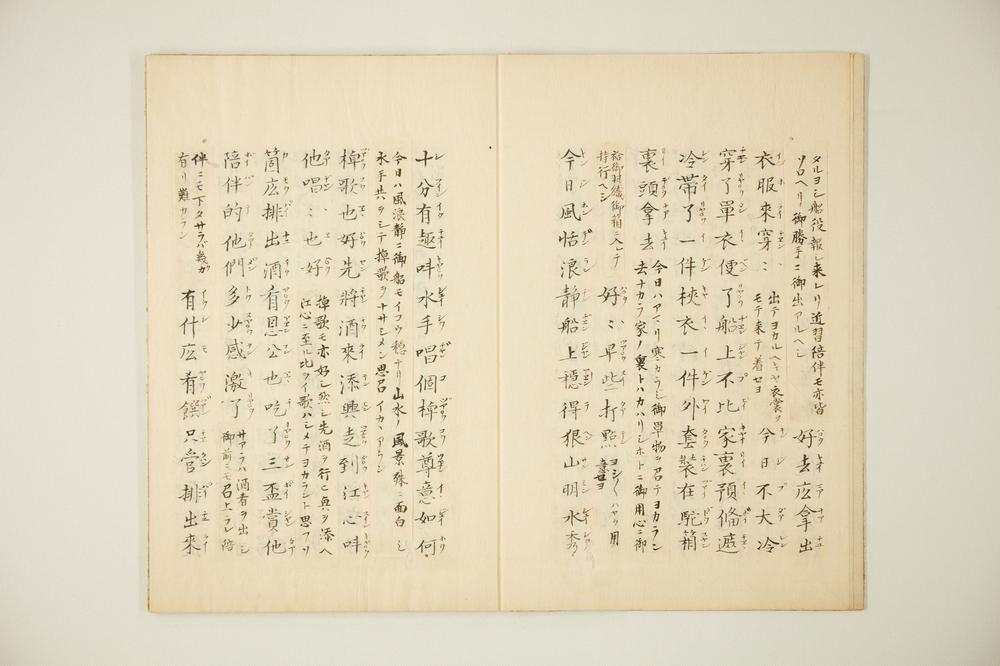 タルヨシ船役報シ来レリ近習陪伴モ亦皆
ソロヘリ御勝手ニ御出アルヘシ
好去広拿出
衣服來穿〻
出テヨカルヘキヤ衣裳ヲ
モテ来テ着セヨ
今日不大冷
穿了單衣便了船上不比家裏預俻遞
冷帶了一件裌衣一件外套裝在駝箱
裏頭拿去
今日ハアマリ寒カラシ御單物ヲ召テヨカラン
去ナカラ家ノ裏トハカハリシホトニ御用心ニ御
袷御羽織御箱ニ入レテ
持行ヘシ
好〻早些打㸃
ヨシ〱ハヤク用
意セヨ
今日風恬浪静船上穩得狠山明水秀
十分有趣呌水手唱個棹歌尊意如何
今日ハ風浪静ニ御船モイコウ穏ナリ山水ノ風景殊ニ面白シ
水手共ヲシテ棹歌ヲナサシメン思召イカヽアラン
棹歌也好先將酒來添興走到江心呌
他唱〻也好
棹歌モ亦好シ然シ先酒ヲ行ヒ興ヲ添ヘ
江心ニ至ル比ヲイ歌ハシメテヨカラント思フナリ
箇広排出酒肴恩公也吃了三盃賞他
陪伴的他們多少感激了
サアラハ酒肴ヲ出シ
御前ニモ召上ラレ陪
伴ニモ下タサラバ幾カ
有リ難カラン
有什広肴饌只管排出來